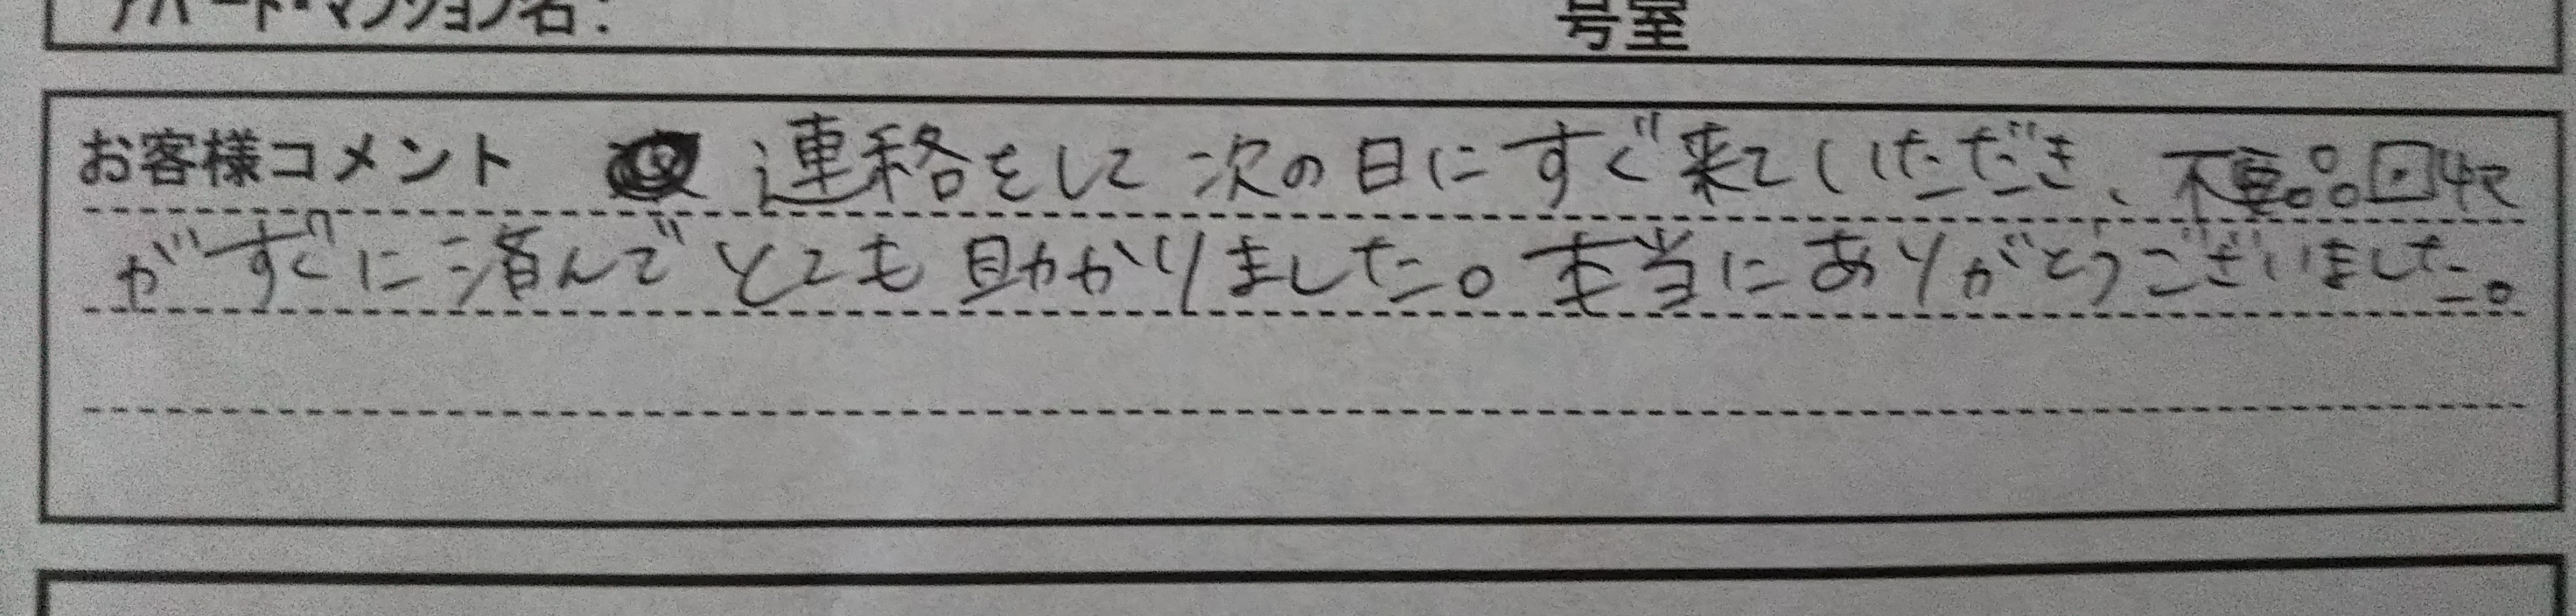 アパート・マンション名: 号室
お客様コメント 連絡をして次の日にすぐ来ていただき、不要品回収
がすぐに済んでとても助かりました。本当にありがとうございました。